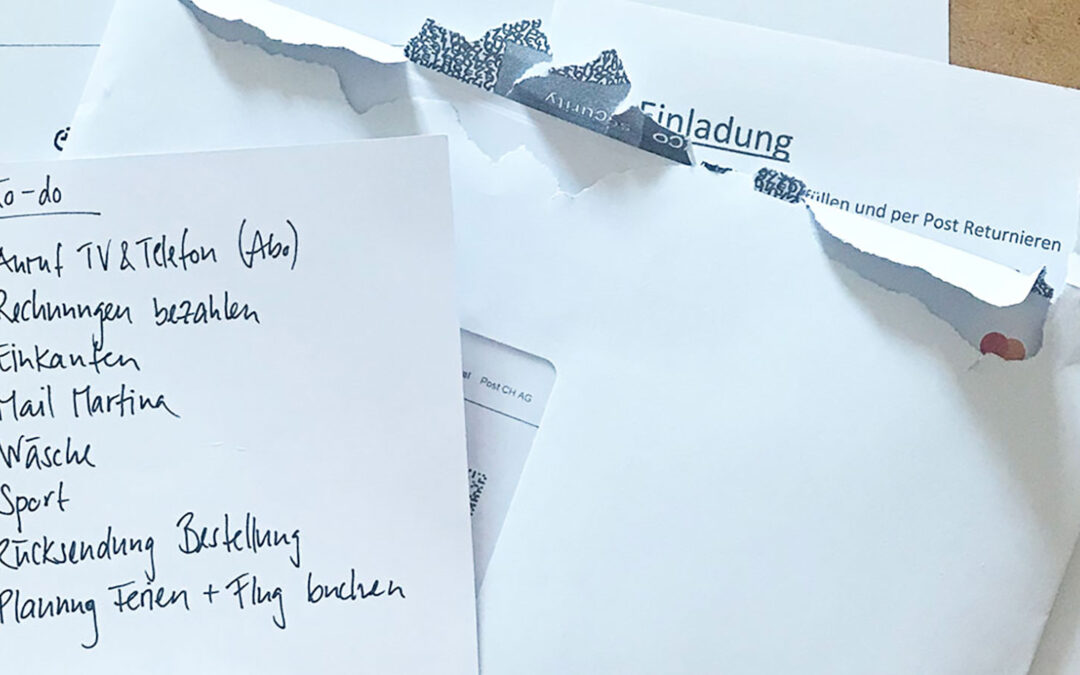 Einladung
füllen und per Post Returnieren
security
Post CH AG
To-do
Anruf TV & Telefon (Abo)
Rechnungen bezahlen
Einkaufen
Mail Martina
Wäsche
Sport
Rücksendung Bestellung
Planung Ferien + Flug buchen